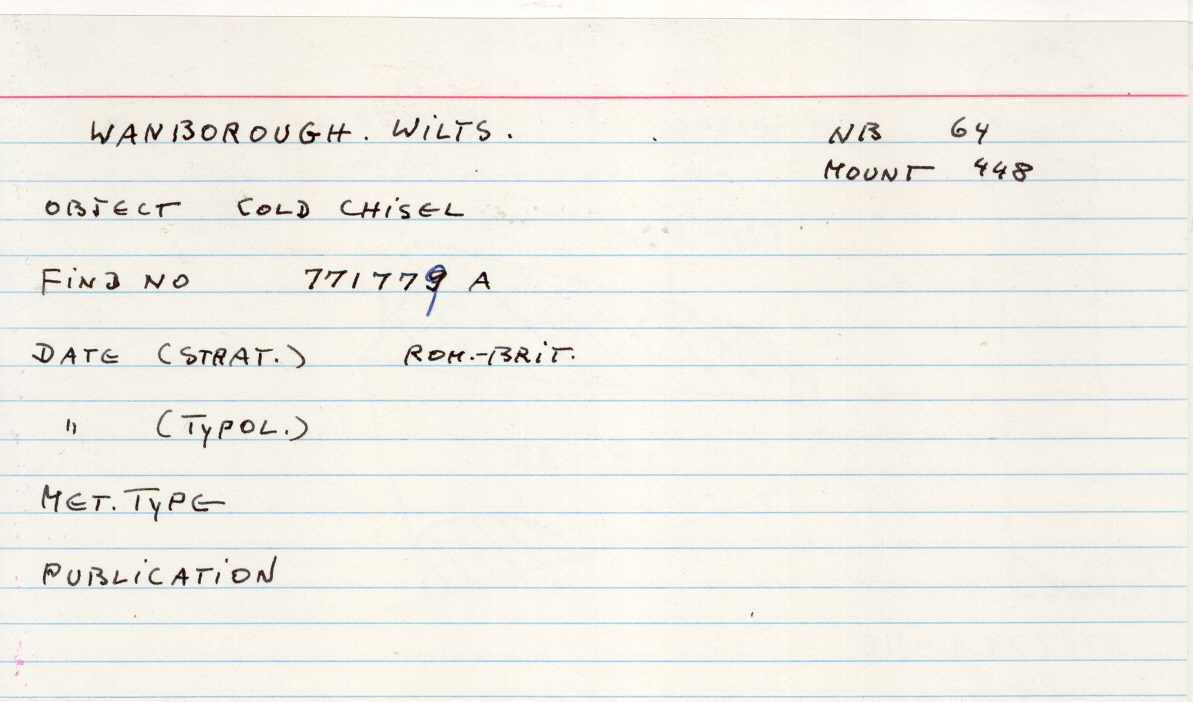 WANBOROUGH. WILTS.
NB 64
MOUNT 448
OBJECT COLD CHISEL
FIND NO 771779 A
DATE (STRAT.) ROM.-BRIT.
" (TYPOL.)
MET. TYPE
PUBLICATION